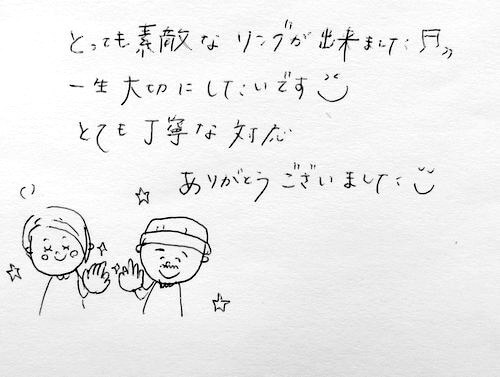 とっても素敵なリングが出来ました♬
一生大切にしたいです
とても丁寧な対応
ありがとうございました